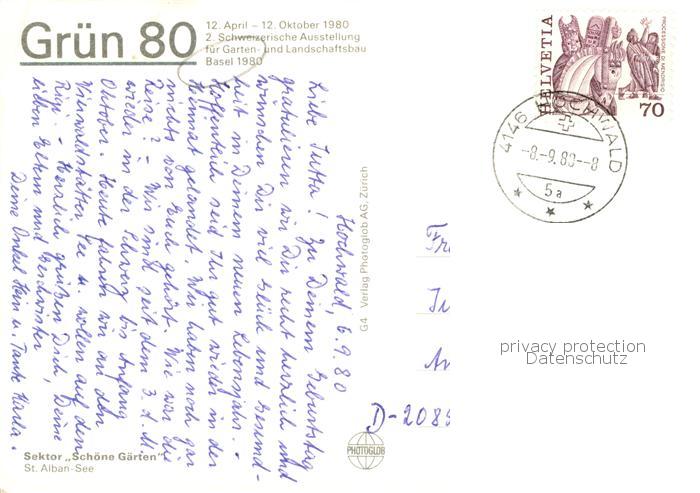 Grün 80
12. April – 12. Oktober 1980
2. Schweizerische Ausstellung
für Garten- und Landschaftsbau
Basel 1980
HELVETIA
PROCESSIONE DI MENDRISIO
70
4146 HOCHWALD
-8.-9.80--8
5a
Hochwald, 6.9.80
Liebe Jutta! Zu Deinem Geburtstag
gratulieren wir Dir recht herzlich und
wünschen Dir viel Glück und Gesund-
heit in Deinem neuen Lebensjahr. -
Hoffentlich seid Ihr gut wieder in der
Heimat gelandet. Wir haben noch gar
nichts von Euch gehört. Wie war die
Reise? - Wir sind seit dem 3. d. M.
wieder in der Schweiz bis Anfang
Oktober. Heute fahren wir an den
Vierwaldstätter See u. wollen auf den
Rigi - Herzlich grüßen Dich, Deine
lieben Eltern und Geschwister
Deine Onkel Hein u. Tante Karla.
G4 Verlag Photoglob AG, Zürich
Fr
D-208
PHOTOGLOB
privacy protection
Datenschutz
Sektor „Schöne Gärten"
St. Alban-See